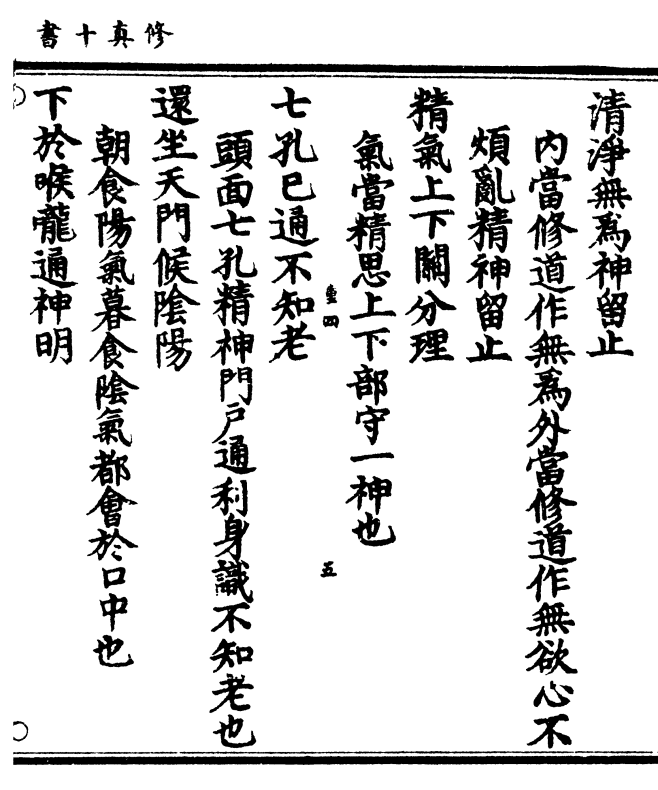 修真十書
清淨無為神留止
內當修道作無為外當修道作無欲心不
煩亂精神留止
精氣上下關分理
氣當精思上下部守一神也
重四
五
七孔已通不知老
頭面七孔精神門戶通利身識不知老也
還坐天門候陰陽
朝食陽氣暮食陰氣都會於口中也
下於喉嚨通神明